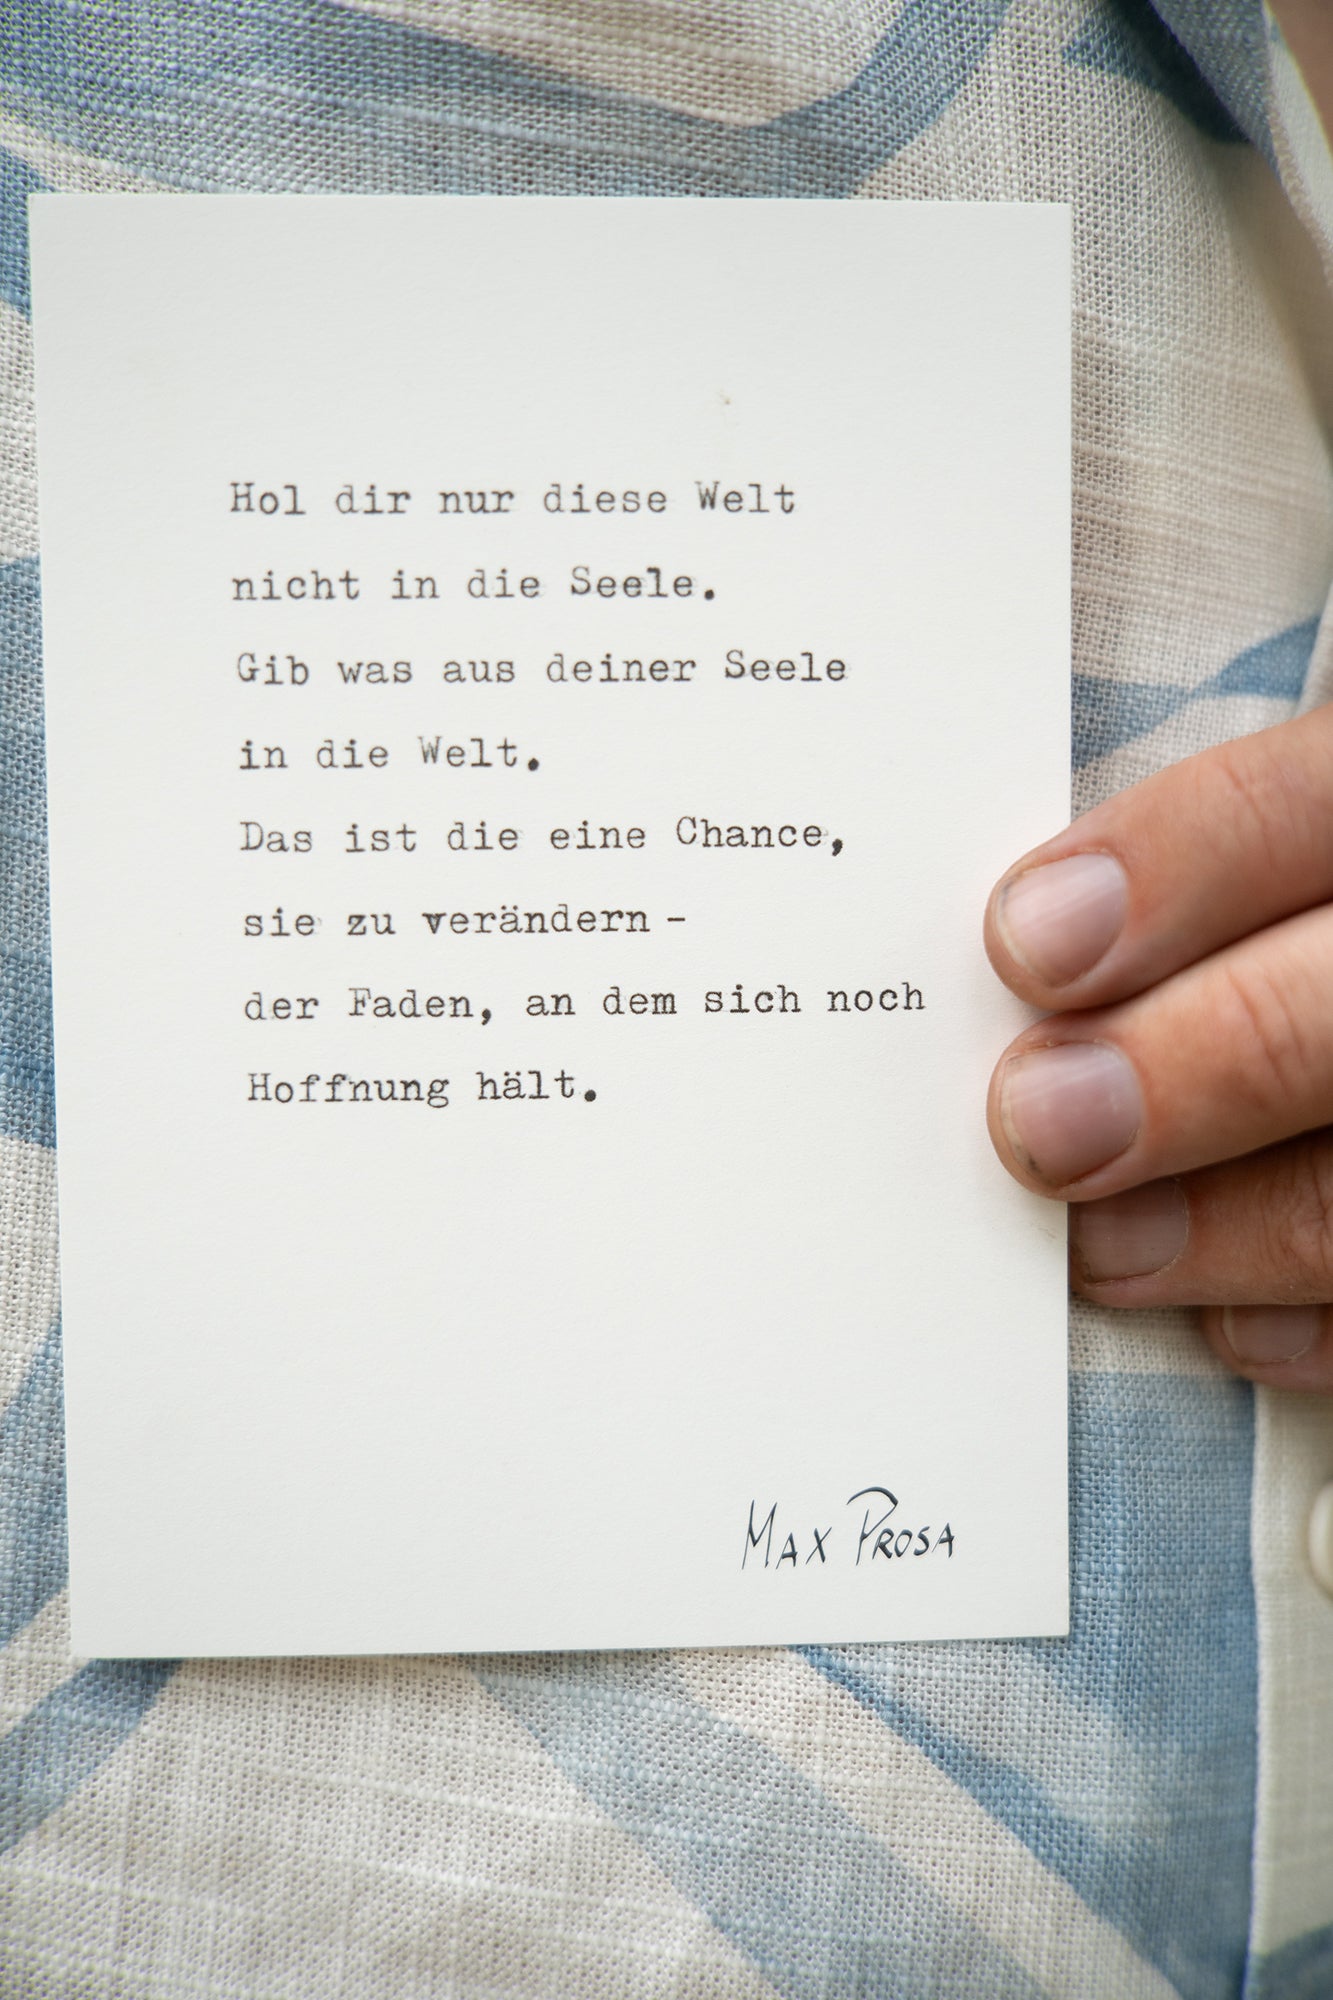 Hol dir nur diese Welt
nicht in die Seele.
Gib was aus deiner Seele
in die Welt.
Das ist die eine Chance,
sie zu verändern -
der Faden, an dem sich noch
Hoffnung hält.
MAX PROSA